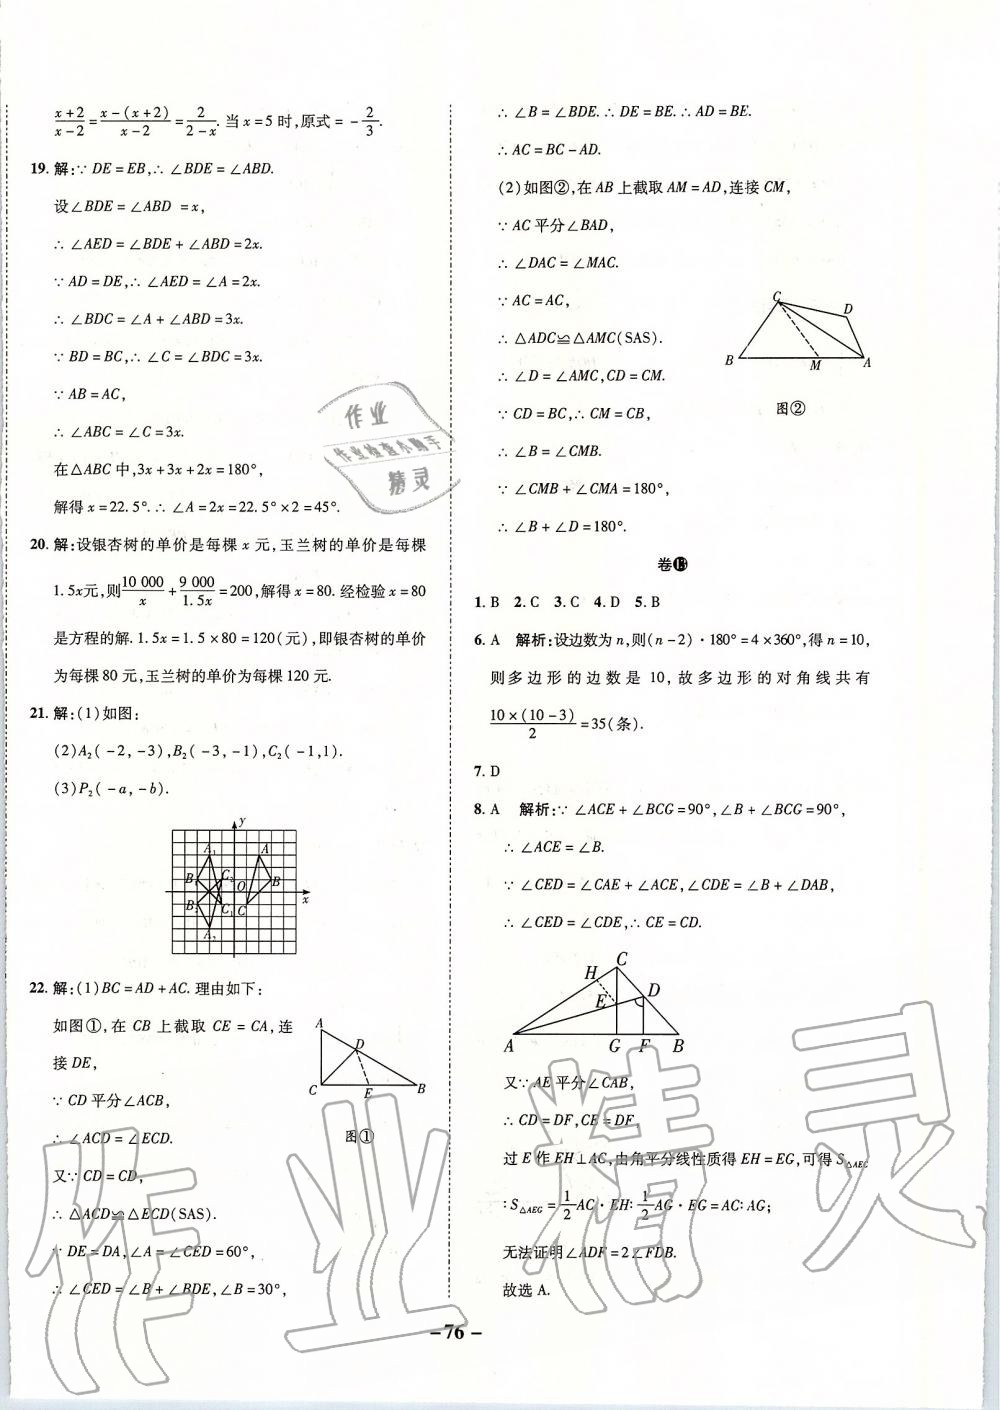 x+2/x-2 = x-(x+2)/x-2 = 2/2-x. 当 x=5 时,原式= -2/3.
19. 解:∵ DE=EB,∴ ∠BDE=∠ABD.
设∠BDE=∠ABD =x,
∴ ∠AED=∠BDE+∠ABD=2x.
∵ AD=DE,∴ ∠AED=∠A=2x.
∴ ∠BDC=∠A+∠ABD=3x.
∵ BD=BC,∴ ∠C=∠BDC=3x.
∵ AB=AC,
∴ ∠ABC=∠C=3x.
在△ABC 中,3x+3x+2x=180°,
解得 x=22.5°.∴ ∠A=2x=22.5°×2=45°.
20. 解:设银杏树的单价是每棵 x 元,玉兰树的单价是每棵
1.5x元,则10 000/x + 9 000/1.5x =200,解得 x=80. 经检验 x=80
是方程的解. 1.5x=1.5×80=120(元),即银杏树的单价
为每棵 80 元,玉兰树的单价为每棵 120 元.
21. 解:(1)如图:
(2)A₂(-2,-3),B₂(-3,-1),C₂(-1,1).
(3)P₂(-a,-b).
y
A₁ A
B₁ C₂ O B
x
B₂ C₁ C
A₂
22. 解:(1)BC=AD+AC. 理由如下:
如图①,在 CB 上截取 CE=CA,连
接 DE,
∵ CD平分∠ACB,
∴ ∠ACD=∠ECD.
又∵ CD=CD,
∴ △ACD≌△ECD(SAS).
∵ DE=DA,∠A=∠CED=60°,
∴ ∠CED=∠B+∠BDE,∠B=30°,
A
D
C E B
图①
∴ ∠B=∠BDE.∴ DE=BE.∴ AD=BE.
∴ AC=BC-AD.
(2)如图②,在 AB 上截取 AM=AD,连接 CM,
∵ AC平分∠BAD,
∴ ∠DAC=∠MAC.
∵ AC=AC,
∴ △ADC≌△AMC(SAS).
∴ ∠D=∠AMC,CD=CM.
∵ CD=BC,∴ CM=CB,
∴ ∠B=∠CMB.
∵ ∠CMB+∠CMA=180°,
∴ ∠B+∠D=180°.
C
D
B M A
图②
卷
1. B 2. C 3. C 4. D 5. B
6. A 解析:设边数为 n,则(n-2)·180°=4×360°,得 n=10,
则多边形的边数是 10,故多边形的对角线共有
10×(10-3)/2 =35(条).
7. D
8. A 解析:∵ ∠ACE+∠BCG=90°,∠B+∠BCG=90°,
∴ ∠ACE=∠B.
∵ ∠CED=∠CAE+∠ACE,∠CDE=∠B+∠DAB,
∴ ∠CED=∠CDE,∴ CE=CD.
C
H
E D
A G F B
又∵ AE平分∠CAB,
∴ CD=DF,CE=DF.
过 E 作 EH⊥AC,由角平分线性质得 EH=EG,可得 S△AEC
:S△AEG=1/2 AC·EH:1/2 AG·EG=AC:AG;
无法证明∠ADF=2∠FDB.
故选 A.
作业
作业检查小助手
精灵
作业精灵
- 76 -